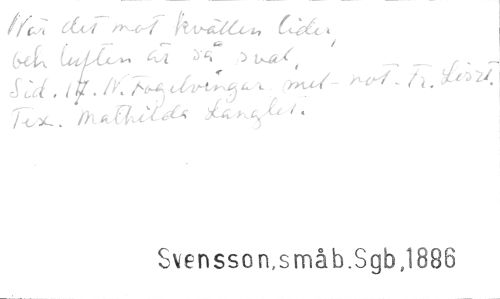 När det mot kvällen lider,
och luften är så sval,
Sid. 17. N. Fogelvingar. mel- not. Fr. Liszt.
Tex. Mathilda Langlet.
Svensson,småb.Sgb,1886